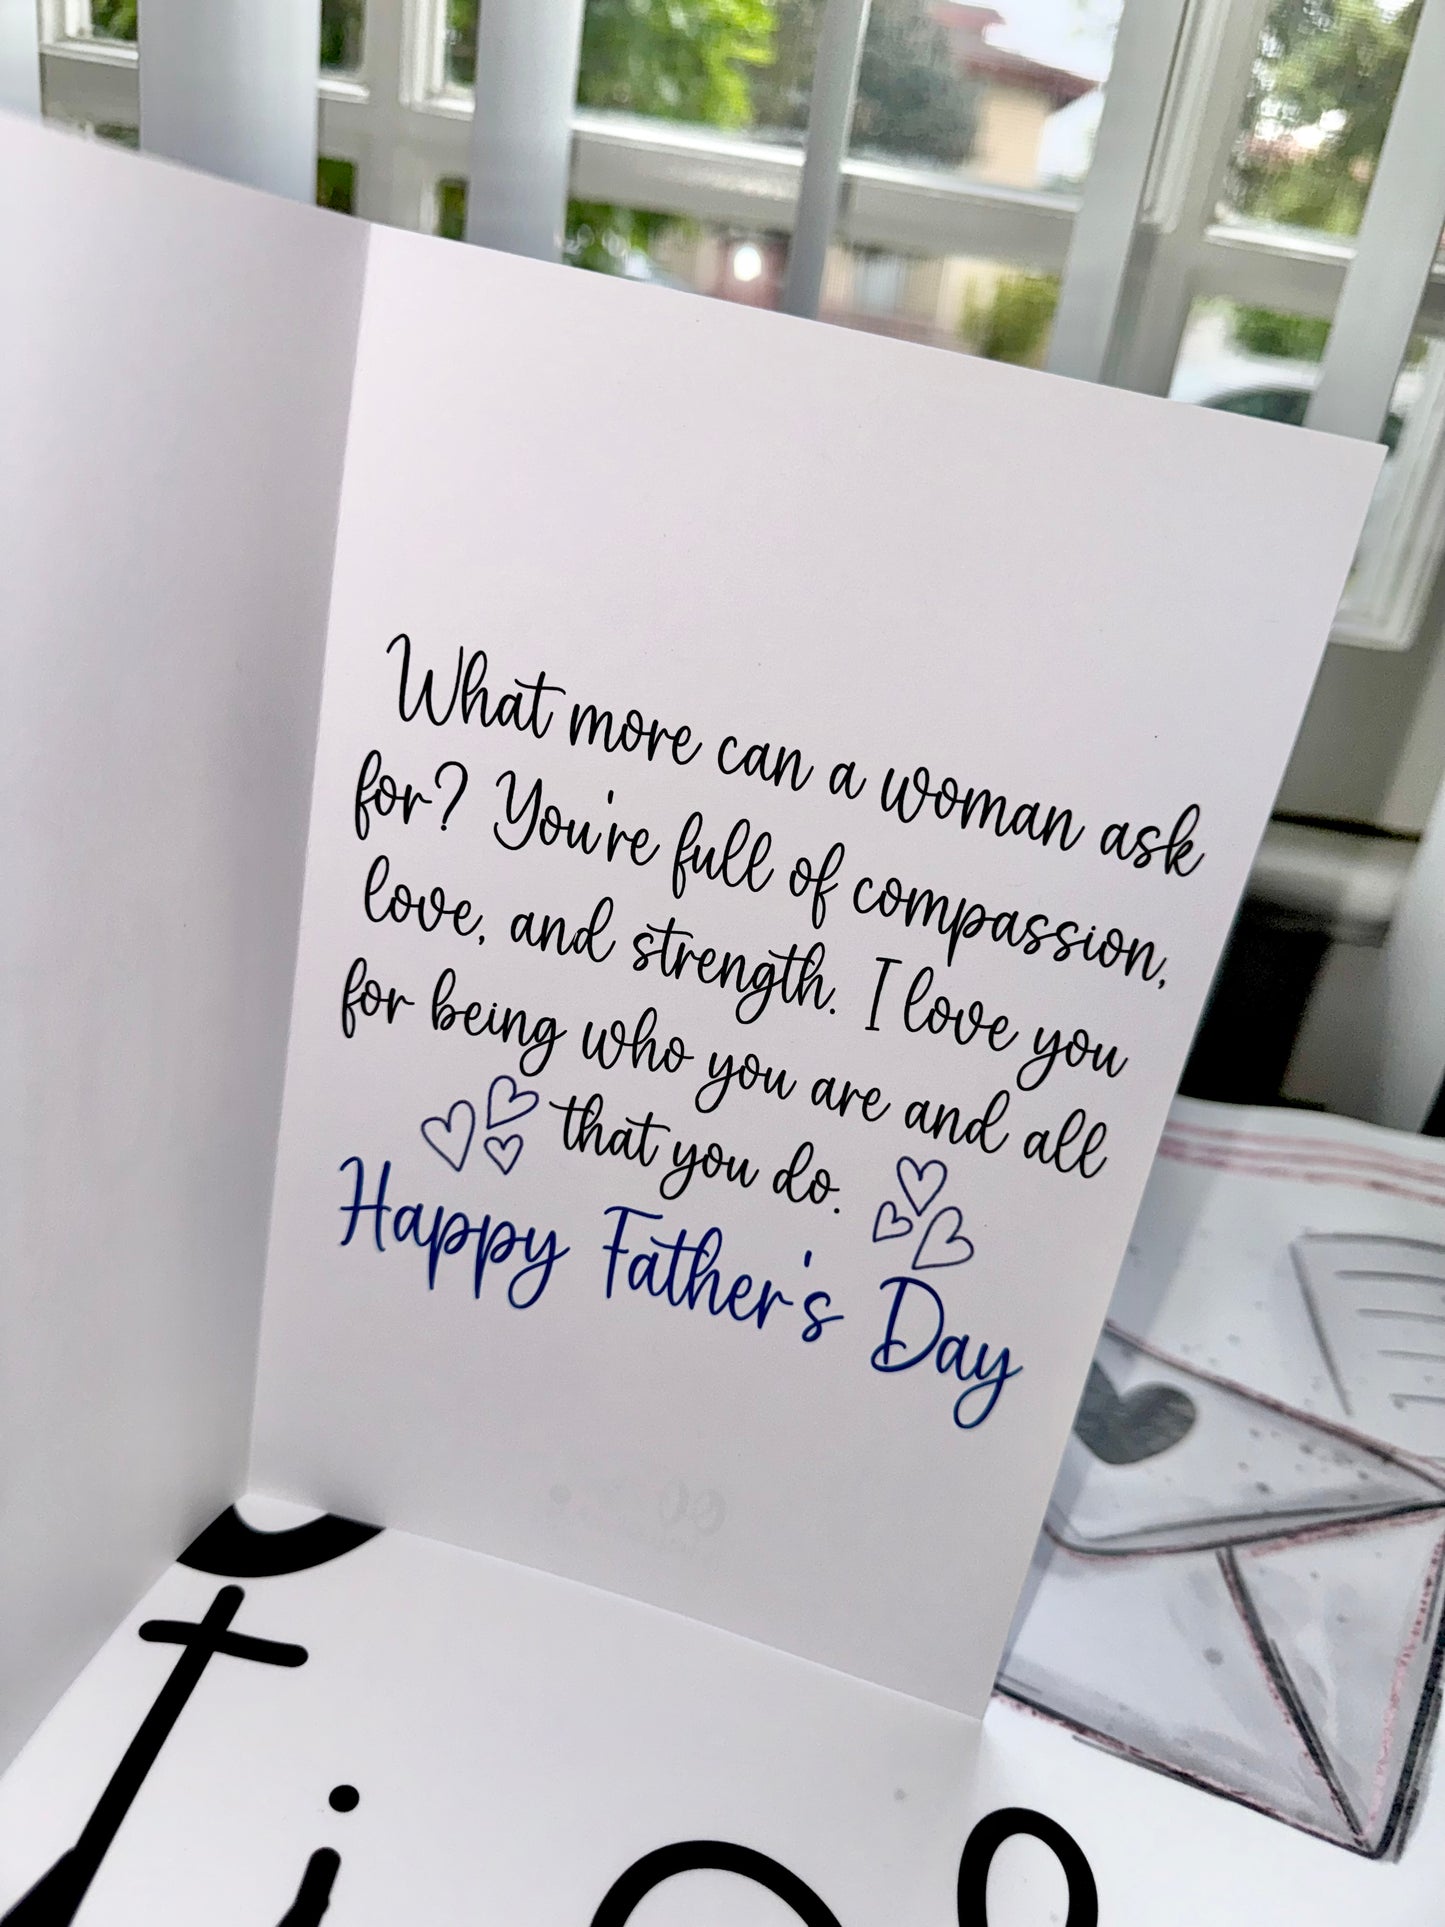 What more can a woman ask
for? You're full of compassion,
love, and strength. I love you
for being who you are and all
that you do.
Happy Father's Day